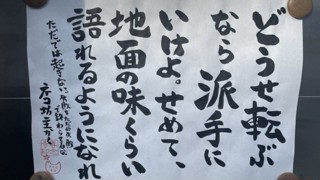 どうせ転ぶ
なら派手に
いけよ。せめて、
地面の味くらい
語れるようになれ
ただでは起きない。